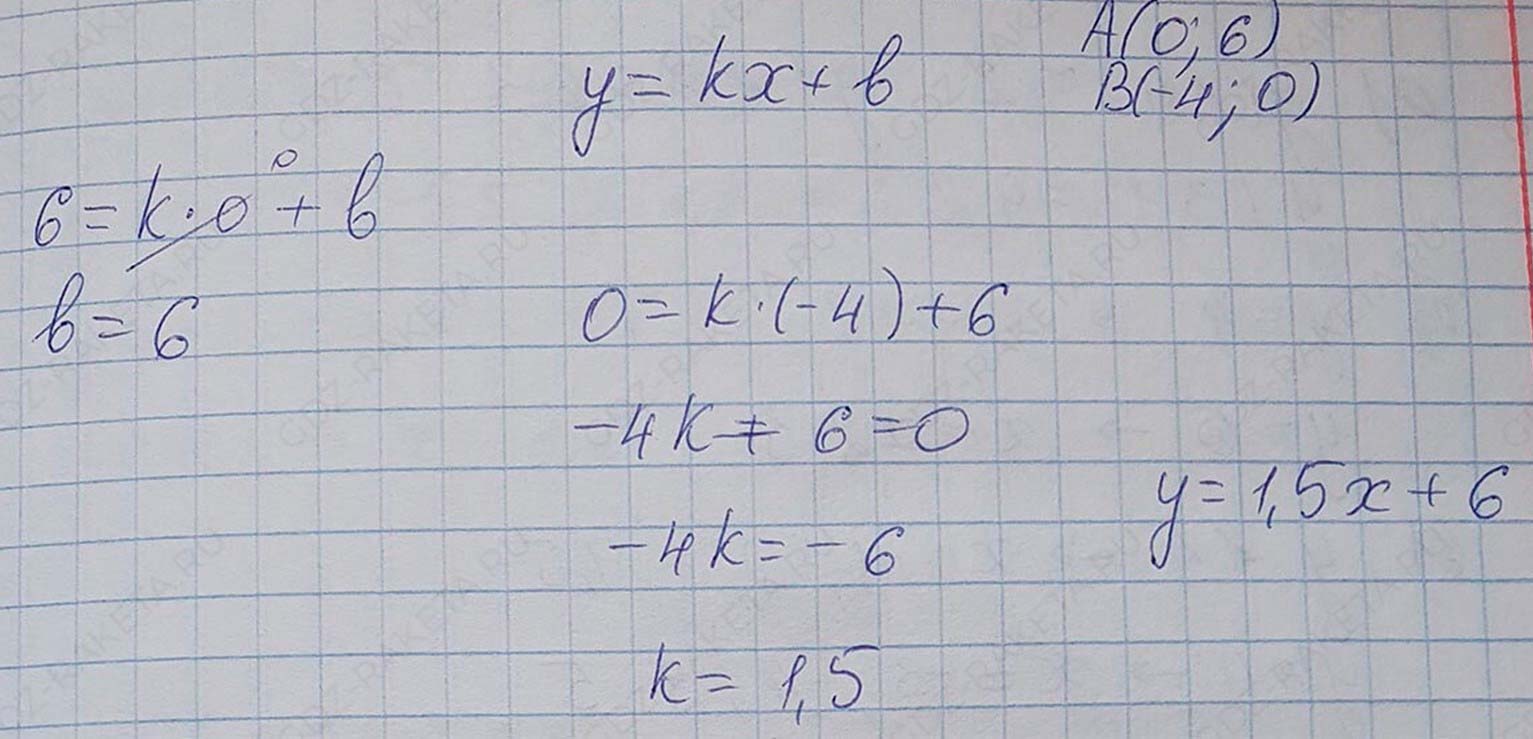 A(0; 6)
y = kx + b
B(-4; 0)
6 = k · 0 + b
0
b = 6
0 = k · (-4) + 6
-4k + 6 = 0
-4k = -6
y = 1,5x + 6
k = 1,5